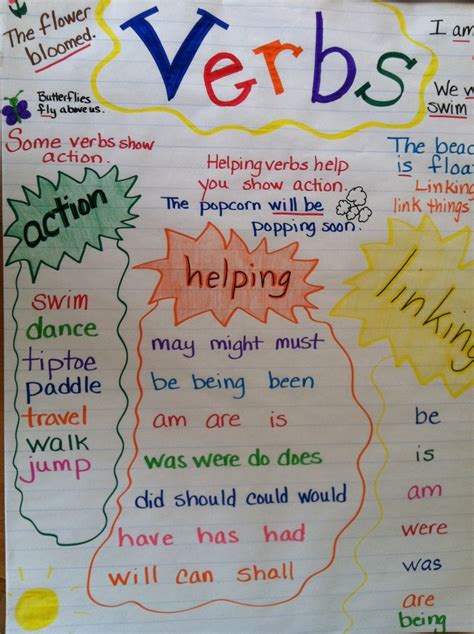 The flower
bloomed.
Verbs
I am
We w
swim
Butterflies
fly above us.
Some verbs show
action.
Helping verbs help
you show action.
The popcorn will be
popping soon.
The bea
is float
Linking
link things
action
swim
dance
tiptoe
paddle
travel
walk
jump
helping
may might must
be being been
am are is
was were do does
did should could would
have has had
will can shall
linking
be
is
am
were
was
are
being